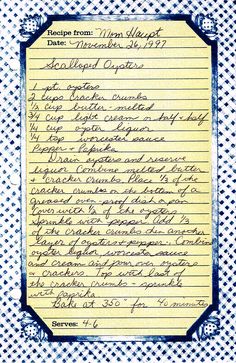 Recipe from: Mom Haupt
Date: November 26, 1997
Scalloped Oysters
1 pt. oysters
2 cups cracker crumbs
½ cup butter - melted
¾ cup light cream or half + half
¼ cup oyster liquor
¼ tsp worcester sauce
Pepper + Paprika
Drain oysters and reserve
liquor. Combine melted butter
+ cracker crumbs. Place ⅓ of the
cracker crumbs on the bottom of a
greased oven-proof dish or pan
Cover with ½ of the oysters
Sprinkle with pepper. Add ⅓
of the cracker crumbs then another
layer of oysters + pepper. Combine
oyster liquor, worcester sauce
and cream and pour over oysters
+ crackers. Top with last of
the cracker crumbs - sprinkle
with paprika
Bake at 350° for 40 minutes
Serves: 4-6